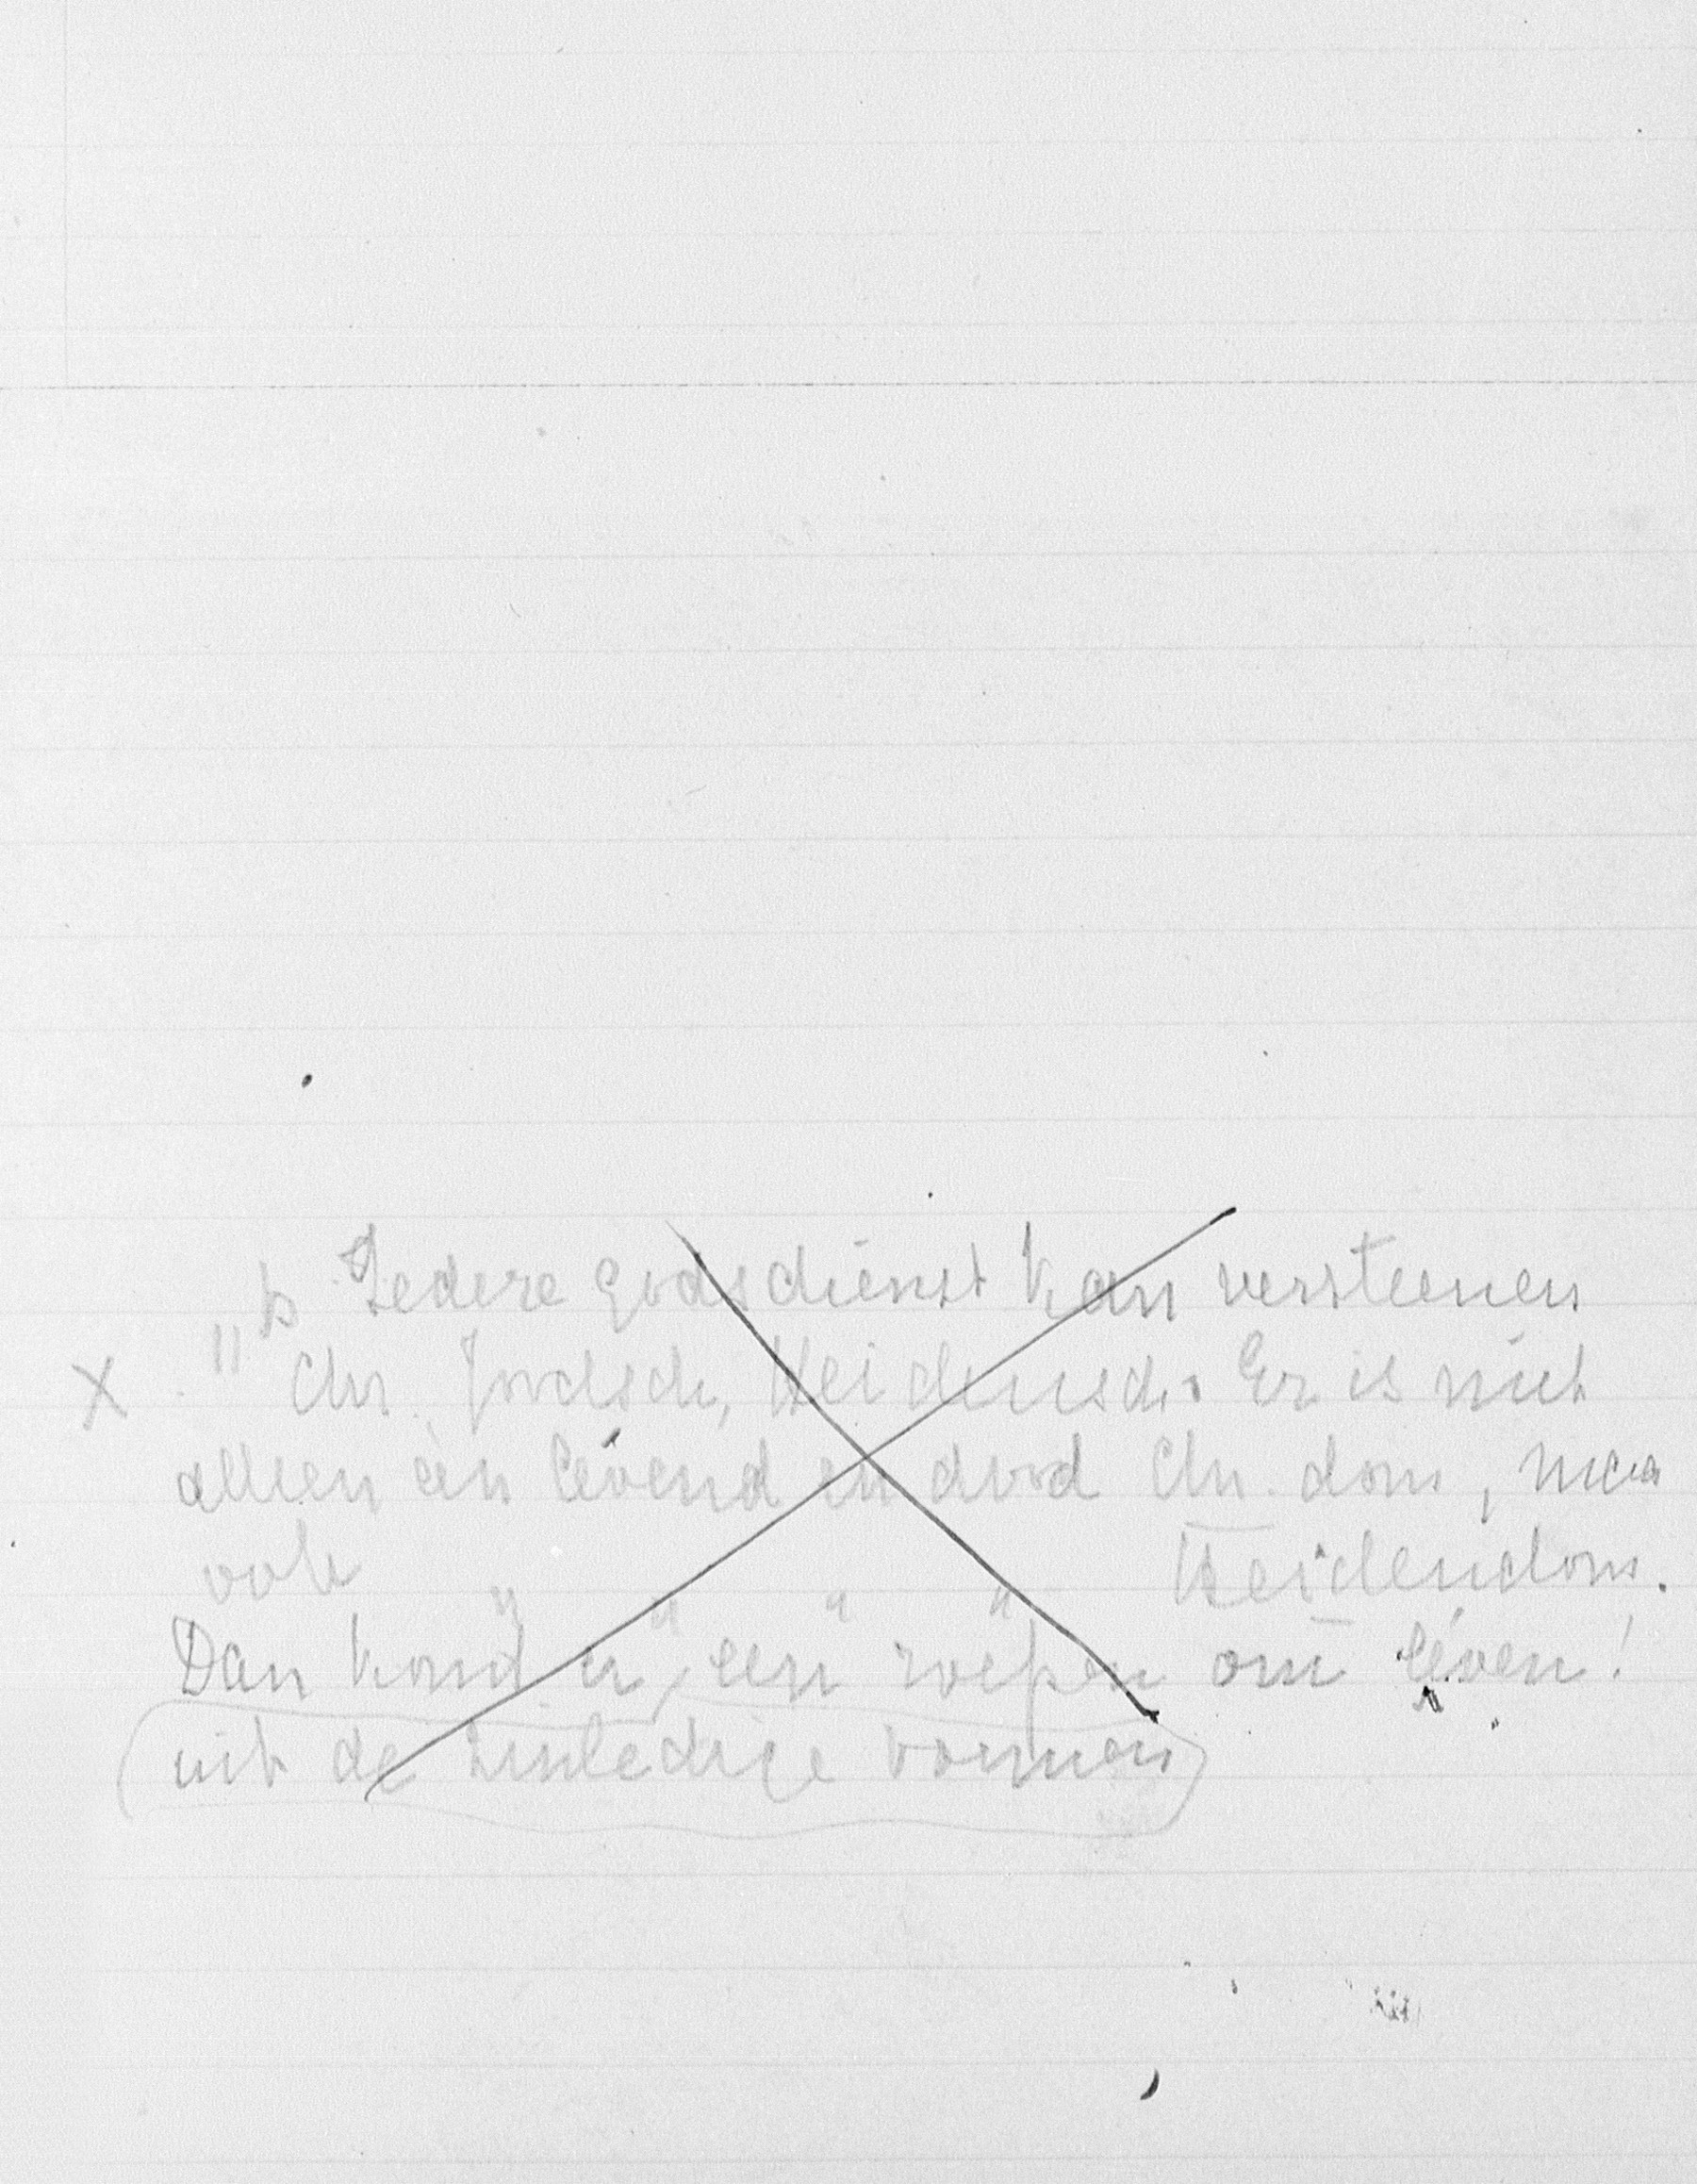 Iedere godsdienst kan versteenen
X " Chr. Joodsch, Heidensch. Er is niet
alleen één lévend en dood Chr. dom, maar
ook " " " " Heidendom.
Dan komt er, een roepen om léven!
(uit de zinledige vormen)